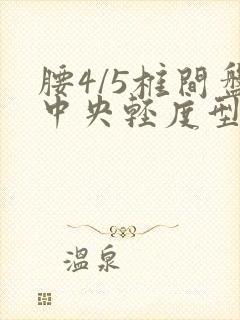 腰4/5椎間盤
中央輕度型
溫泉